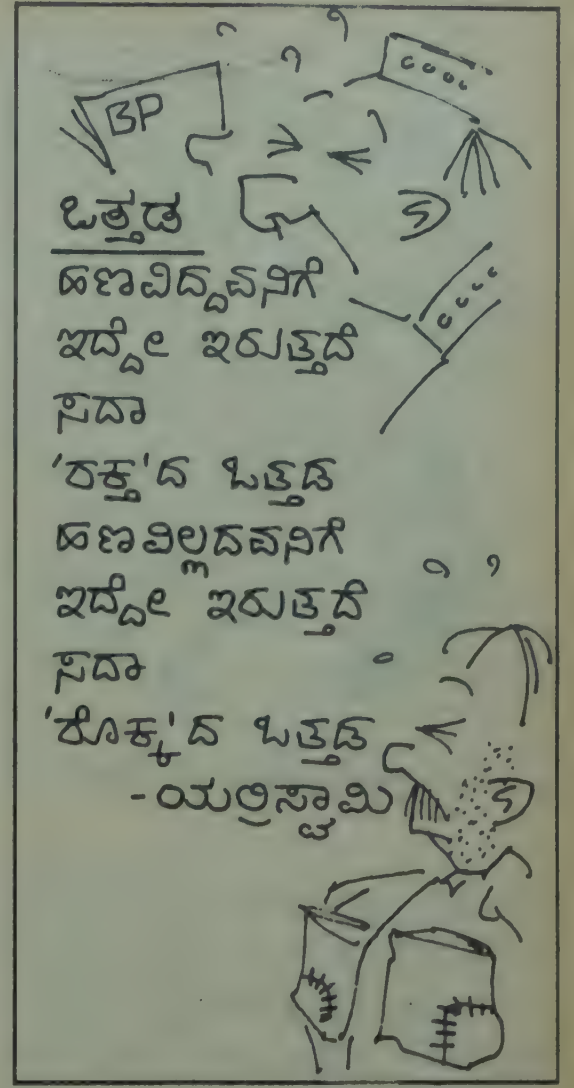 BP
ಒತ್ತಡ
ಹಣವಿದ್ದವನಿಗೆ
ಇದ್ದೇ ಇರುತ್ತದೆ
ಸದಾ
'ರಕ್ತ'ದ ಒತ್ತಡ
ಹಣವಿಲ್ಲದವನಿಗೆ
ಇದ್ದೇ ಇರುತ್ತದೆ
ಸದಾ
'ರೊಕ್ಕ'ದ ಒತ್ತಡ
-ಯಲ್ರಿಸ್ವಾಮಿ